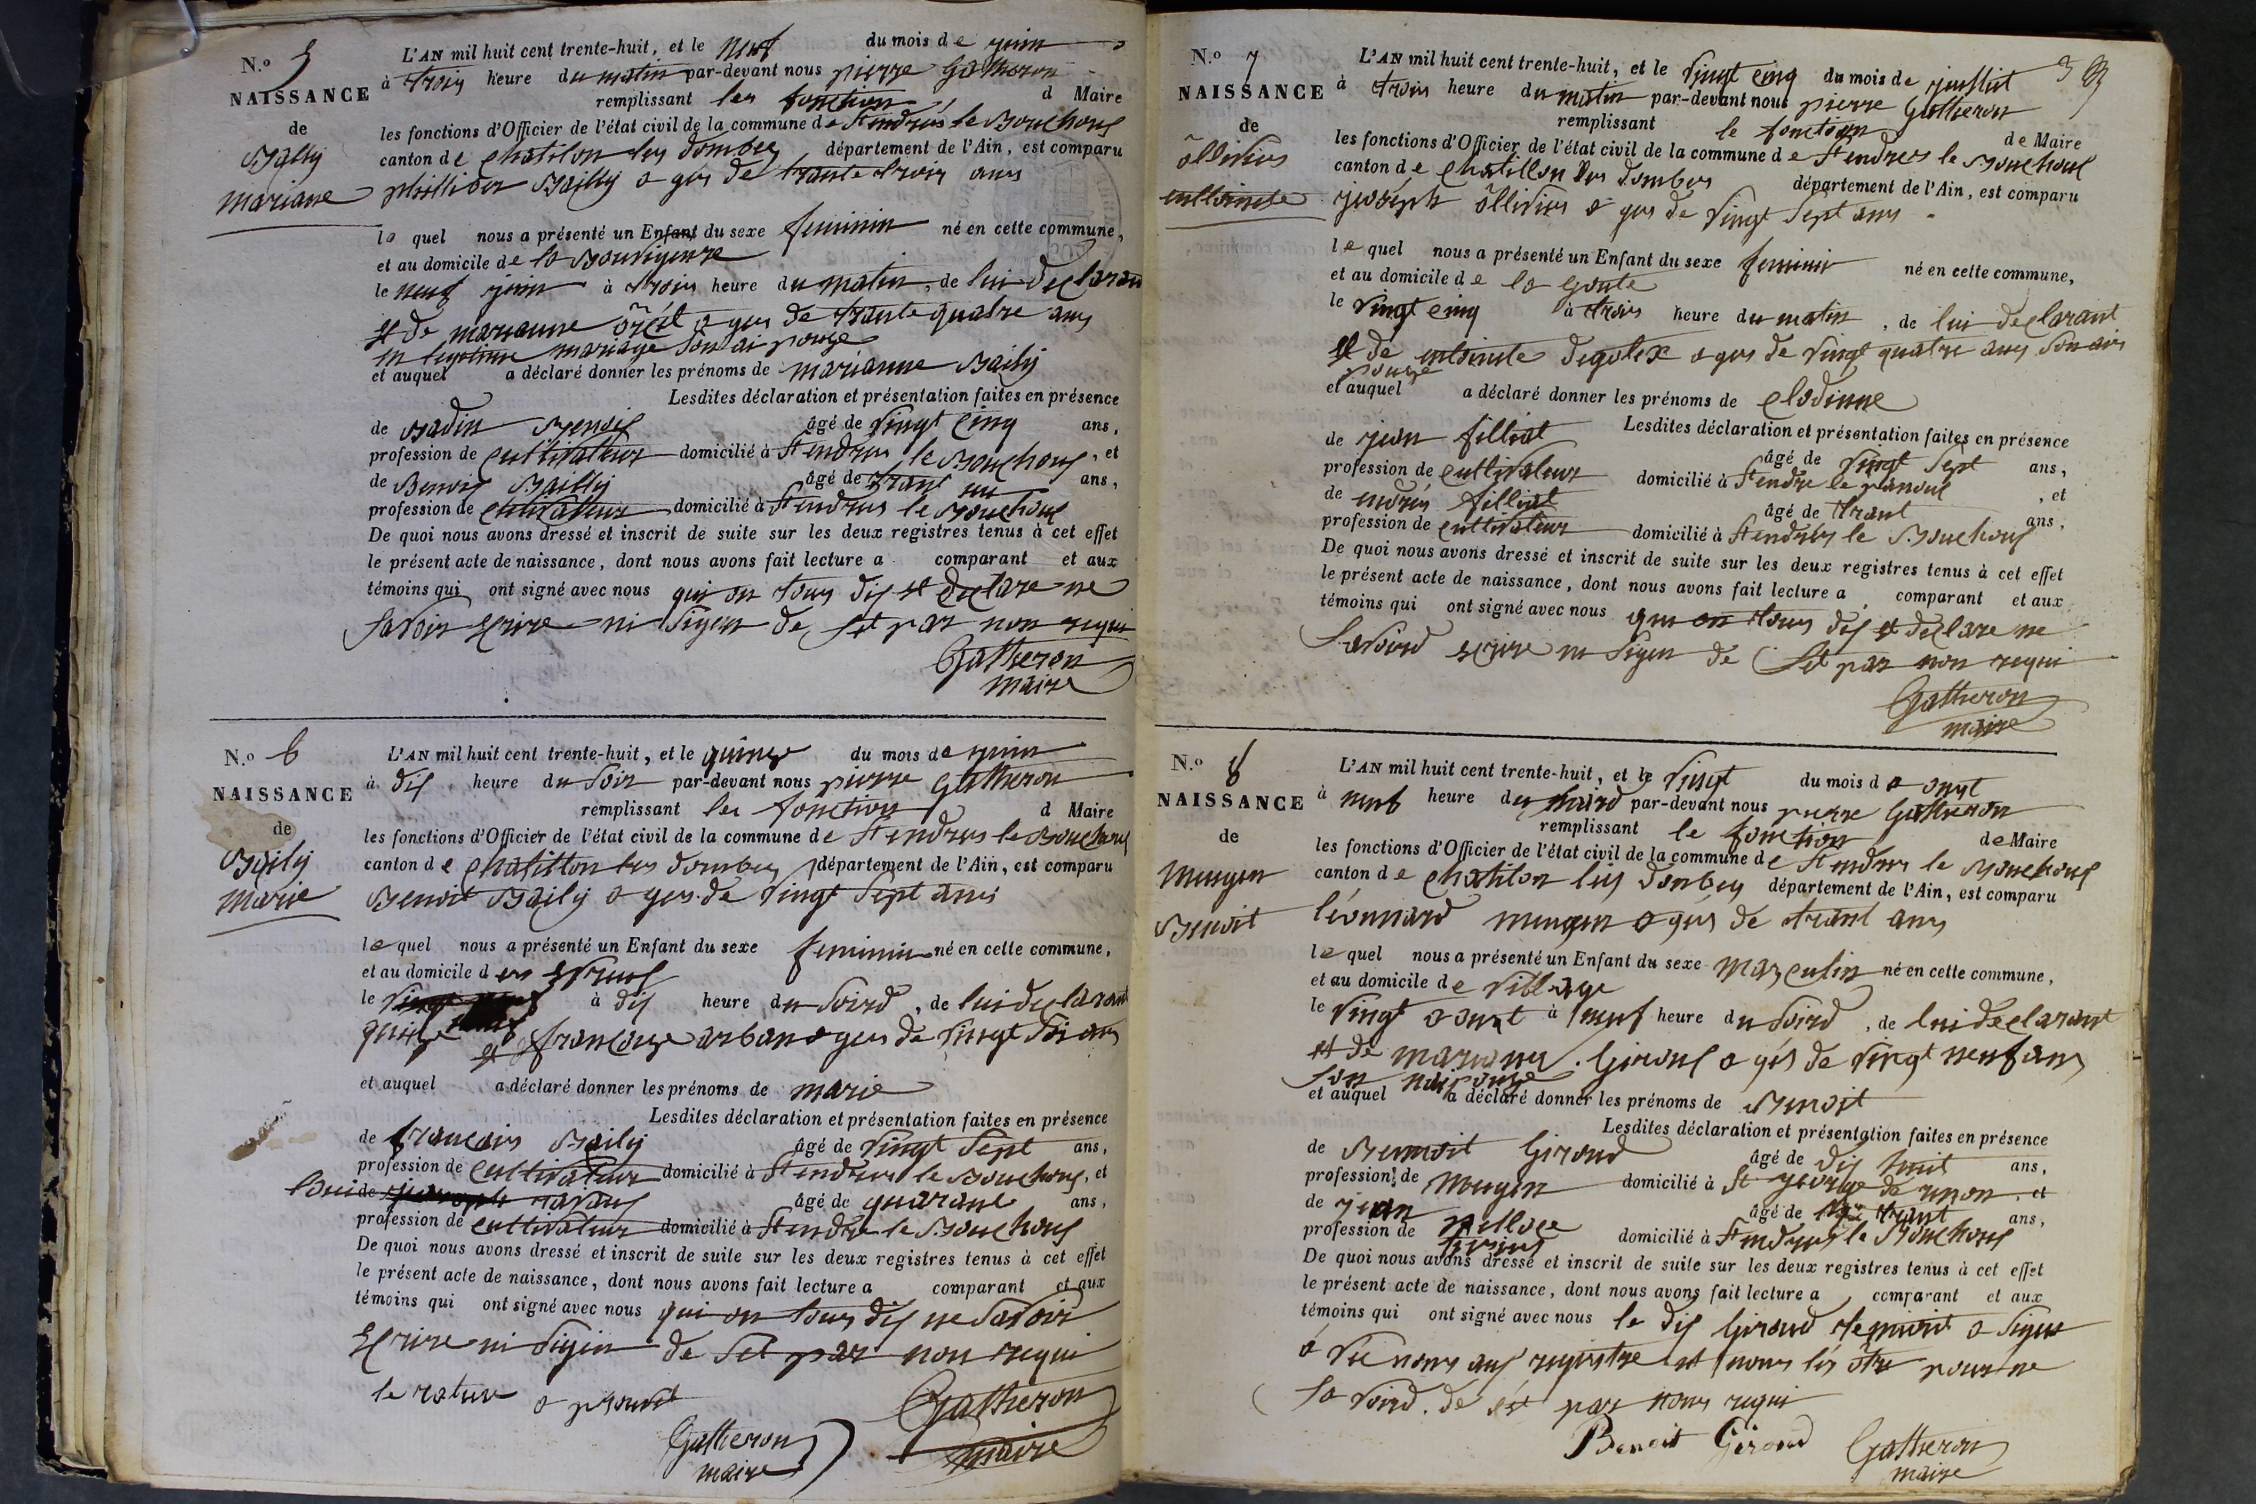 N.o 5
NAISSANCE
de
Bailly
mariane
L'AN mil huit cent trente-huit, et le neuf du mois de juin
à trois heure du matin par-devant nous pierre Gatheron
remplissant les fonction d Maire
les fonctions d'Officier de l'état civil de la commune de St endrés le Bouchous
canton de chatilon les dombes département de l'Ain, est comparu
philliber Bailly a ges de trante trois ans
le quel nous a présenté un Enfant du sexe feminin né en cette commune,
et au domicile de la
le neuf juin à trois heure du matin, de lui declaran
et de marianne a ges de trante quatre ans
en legetime mariage son ai pouze
et auquel a déclaré donner les prénoms de marianne Baily
Lesdites déclaration et présentation faites en présence
de Badin Benois âgé de vingt cinq ans,
profession de cultivateur domicilié à St endres le Bouchous, et
de Benois Bailly âgé de trant un ans,
profession de cultivateur domicilié à St endrus le Bouchous
De quoi nous avons dressé et inscrit de suite sur les deux registres tenus à cet effet
le présent acte de naissance, dont nous avons fait lecture a comparant et aux
témoins qui ont signé avec nous qui on tous dis et declare ne
savoir ecrire ni signer de set par non requi
Gatheron
maire
N.o 6
NAISSANCE
de
Baily
marie
L'AN mil huit cent trente-huit, et le quinze du mois de juin
à dis heure du soir par-devant nous pierre Gatheron
remplissant les fonction d Maire
les fonctions d'Officier de l'état civil de la commune de St endrus le Bouchous
canton de chatillon les dombes département de l'Ain, est comparu
Benoit Baily a ges de vingt sept ans
le quel nous a présenté un Enfant du sexe feminin né en cette commune,
et au domicile d
le à dis heure du soird, de lui declarant
quinze
et francoize arban a ges de vingt ans
et auquel a déclaré donner les prénoms de marie
Lesdites déclaration et présentation faites en présence
de francois Baily âgé de vingt sept ans,
profession de cultivateur domicilié à St endrus le Bouchous, et
de âgé de quarane ans,
profession de cultivateur domicilié à St endre le Bouchous
De quoi nous avons dressé et inscrit de suite sur les deux registres tenus à cet effet
le présent acte de naissance, dont nous avons fait lecture a comparant et aux
témoins qui ont signé avec nous qui on tous dis ne savoir
ecrire ni signin de set par non requi
le rature a prouvet
Gatheron
maire
Gatheron
maire
N.o 7
NAISSANCE
de
ôllivier
L'AN mil huit cent trente-huit, et le vingt cinq du mois de juillet
à trois heure du matin par-devant nous pierre Gatheron
remplissant le fonction de Maire
les fonctions d'Officier de l'état civil de la commune de St endres le Bouchous
canton de chatillon les dombes département de l'Ain, est comparu
joséph ôllivier a ges de vingt sept ans
le quel nous a présenté un Enfant du sexe feminin né en cette commune,
et au domicile de la goute
le vingt cinq à trois heure du matin, de lui declarant
et de degolex a ges de vingt quatre ans son ai
pouze
et auquel a déclaré donner les prénoms de clodinne
Lesdites déclaration et présentation faites en présence
de jean filliat âgé de vingt sept ans,
profession de cultivateur domicilié à St endre le , et
de endrés filliat âgé de trant ans,
profession de cultivateur domicilié à St endres le Bouchous
De quoi nous avons dressé et inscrit de suite sur les deux registres tenus à cet effet
le présent acte de naissance, dont nous avons fait lecture a comparant et aux
témoins qui ont signé avec nous qui on tous dis et declare ne
savoird ecrire ni signer de set par non requi
Gatheron
maire
N.o 8
NAISSANCE
de
mugen
Benoit
L'AN mil huit cent trente-huit, et le vingt du mois d
à neuf heure du par-devant nous pierre Gatheron
remplissant le fonction de Maire
les fonctions d'Officier de l'état civil de la commune de St endres le Bouchous
canton de chatilon les donbes département de l'Ain, est comparu
léonnard mugen a gés de trant ans
le quel nous a présenté un Enfant du sexe masculin né en cette commune,
et au domicile de village
le vingt à neuf heure du soird, de lui declarant
et de Giroud a gés de vingt neuf ans
son
et auquel a déclaré donner les prénoms de Benoit
Lesdites déclaration et présentation faites en présence
de Bennoit Giroud âgé de dis huit ans,
profession de domicilié à St george de renon, et
de jean pelloce âgé de trant ans,
profession de domicilié à St endres le Bouchous
De quoi nous avons dressé et inscrit de suite sur les deux registres tenus à cet effet
le présent acte de naissance, dont nous avons fait lecture a comparant et aux
témoins qui ont signé avec nous le dis Giroud Bennoit a signe
a vec nous aus registre et nous les ôtre pour ne
sa voird de set par nous requi
Benoit Giroud
Gatheron
maire